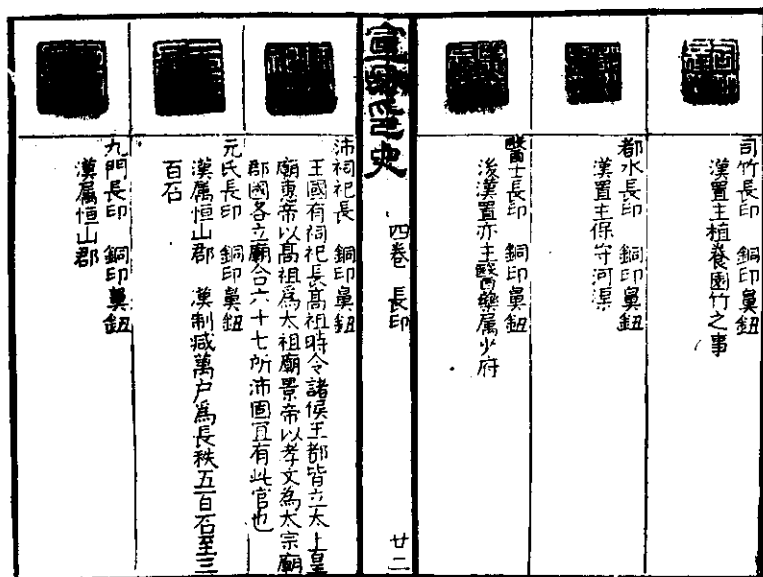 司竹長印　銅印鼻鈕
漢置主植養園竹之事
都水長印　銅印鼻鈕
漢置主保守河渠
醫士長印　銅印鼻鈕
後漢置亦主醫藥属少府
宣和印史
四卷　長印
廿二
沛祠祀長　銅印鼻鈕
王國有祠祀長髙祖時令諸侯王都皆立太上皇
廟惠帝以髙祖爲太祖廟景帝以孝文為太宗廟
郡國各立廟合六十七所沛固宜有此官也
元氏長印　銅印鼻鈕
漢属恒山郡　漢制减萬户爲長秩五百石至三
百石
九門長印　銅印鼻鈕
漢属恒山郡